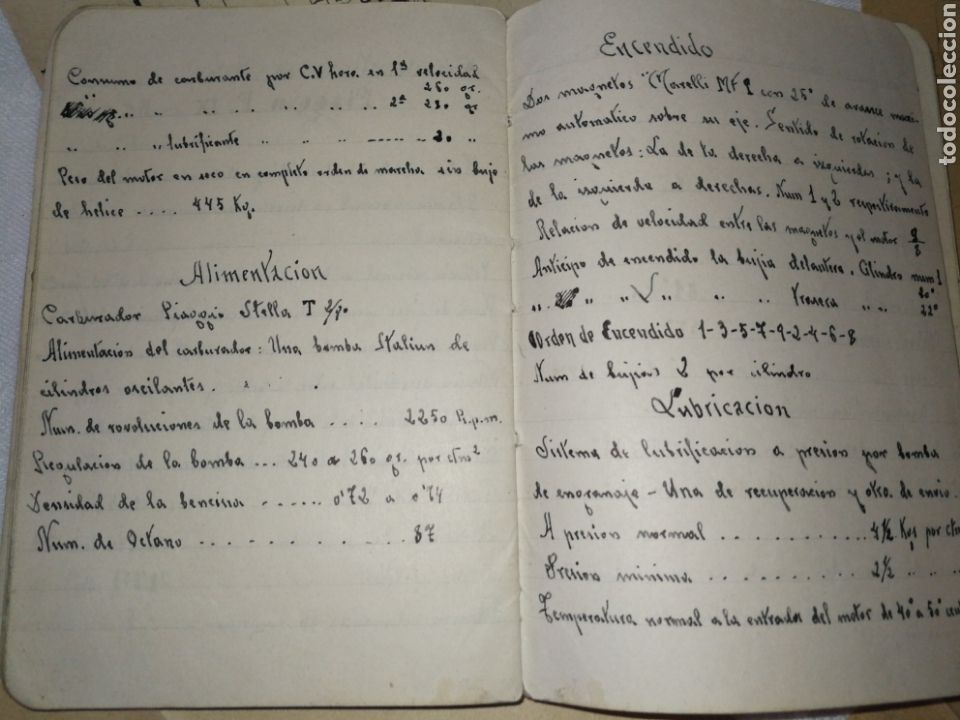 Consumo de carburante por C.V hora en 1ª velocidad
250 gr.
" " " " " " 2ª 280 gr
" " " lubrificante " " " ----- 20 "
Peso del motor en seco en completo orden de marcha sin bujo
de helice .... 445 Kg.
Alimentacion
Carburador Piaggio Stella T
Alimentacion del carburador: Una bomba de
cilindros oscilantes.
Num. de rovoluciones de la bomba .... 2250 R.p.m.
Regulacion de la bomba ... 240 a 260 gr. por ctm²
Densidad de la bencina ..... 0'72 a 0'74
Num. de Octano ............ 87
Encendido
Dos magnetos "Marelli MF 9 con 25° de avance maxi-
mo automatico sobre su eje. Sentido de rotacion de
las magnetos: La de la derecha a izquierdas; y la
de la izquierda a derechas. Num 1 y 2 respectivamente
Relacion de velocidad entre las magnetos y el motor 9/8
Anticipo de encendido la bujia delantera. Cilindro num 1
20°
" " " " " " trasera " " 22°
Orden de Encendido 1-3-5-7-9-2-4-6-8
Num de bujias 2 por cilindro
Lubricacion
Sistema de lubrificacion a presion por bomba
de engranaje - Una de recuperacion y otra de envio.
A presion normal ........... 4½ Kgs por ctm
Presion minima ......... 2½ " "
Temperatura normal a la entrada del motor de 40° a 50° cent
todocoleccion